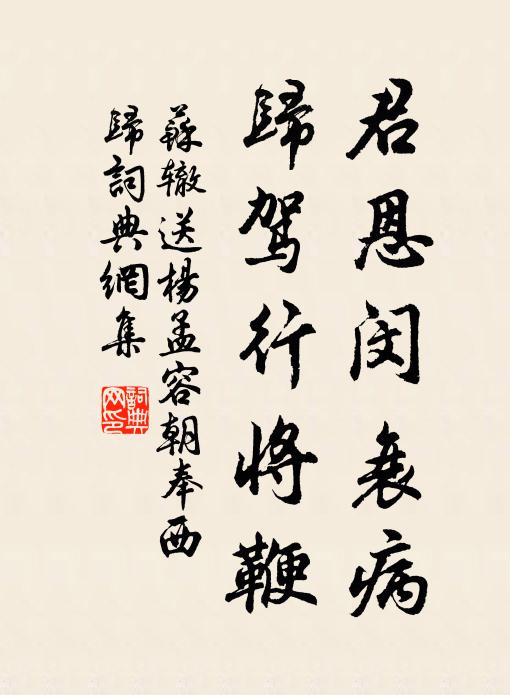 君恩闵衰病
歸驾行将鞭
蘇辙送楊孟容朝奉西
歸詞典網集
詞典
网印